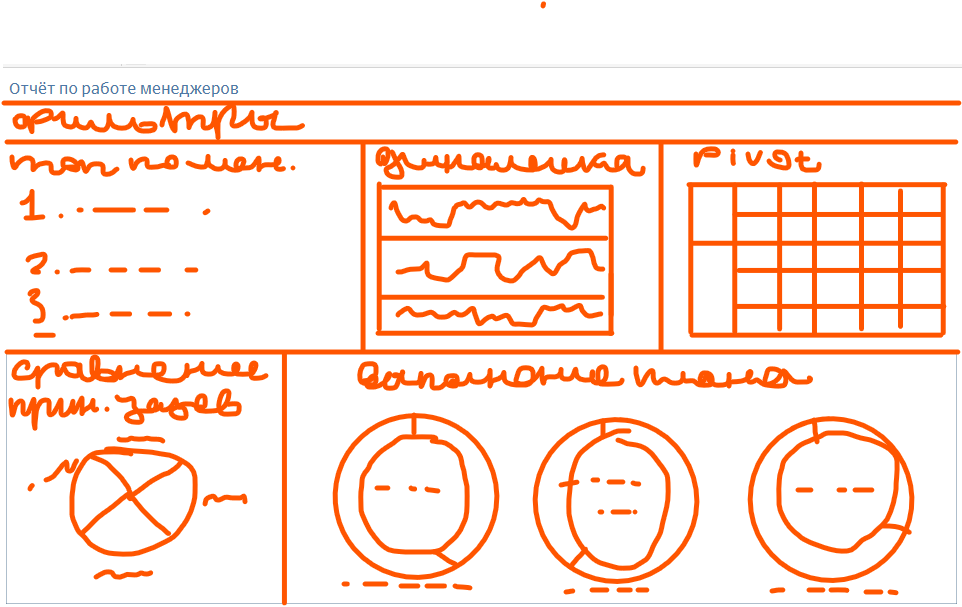 Отчёт по работе менеджеров
фильтры
топ по мен.
динамика
pivot
1.
2.
3
сравнение
прич.
выполнение плана